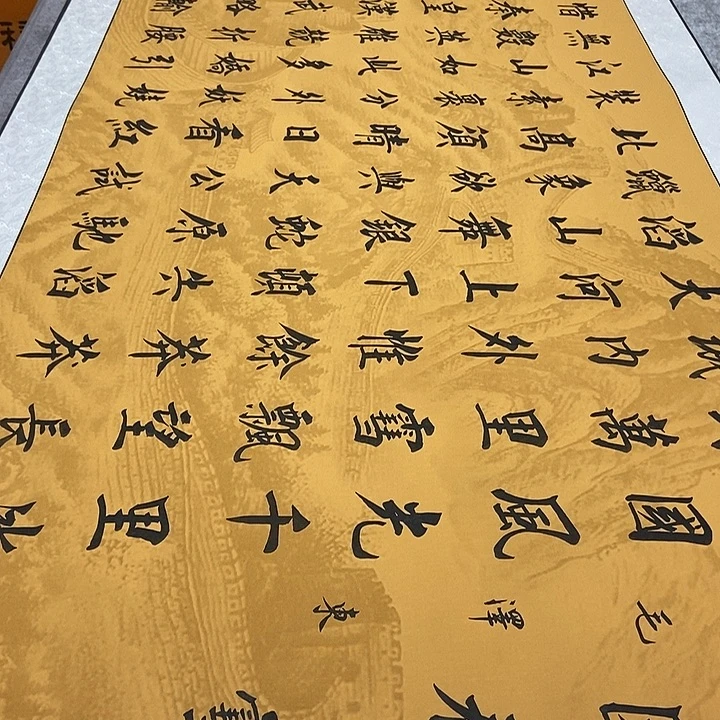 毛澤東
國風光千里冰
萬里雪飄望長
城內外惟餘莽莽
大河上下頓失滔
滔山舞銀蛇原馳
蠟象欲與天公試
比高須晴日看紅
裝素裹分外妖嬈
江山如此多嬌引
無數英雄折腰
惜秦皇漢武略輸